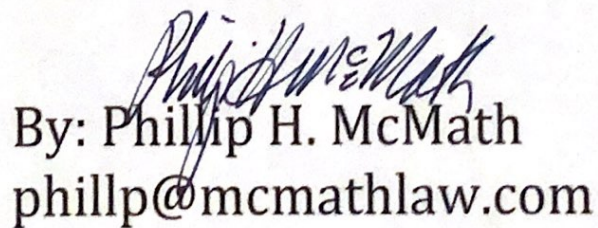 Philip H McMath
By: Phillip H. McMath
phillp@mcmathlaw.com